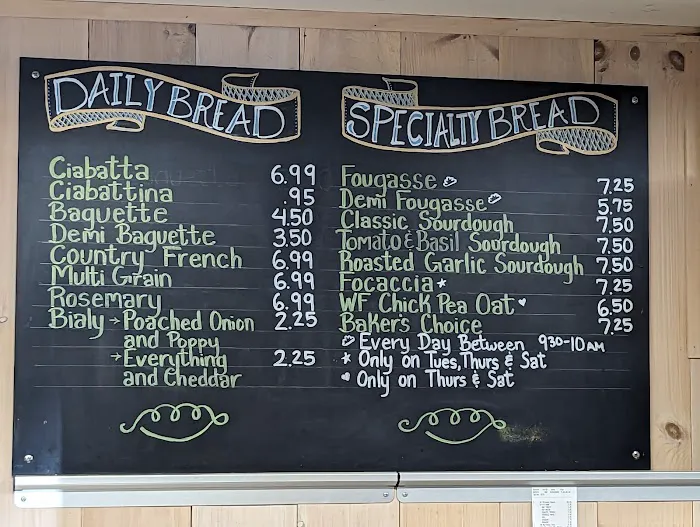 DAILY BREAD
Ciabatta 6.99
Ciabattina .95
Baguette 4.50
Demi Baguette 3.50
Country French 6.99
Multi Grain 6.99
Rosemary 6.99
Bialy → Poached Onion 2.25
and Poppy
→ Everything 2.25
and Cheddar
SPECIALTY BREAD
Fougasse 7.25
Demi Fougasse 5.75
Classic Sourdough 7.50
Tomato & Basil Sourdough 7.50
Roasted Garlic Sourdough 7.50
Focaccia * 7.25
WF Chick Pea Oat ♥ 6.50
Baker's Choice 7.25
Every Day Between 930-10AM
* Only on Tues, Thurs & Sat
♥ Only on Thurs & Sat